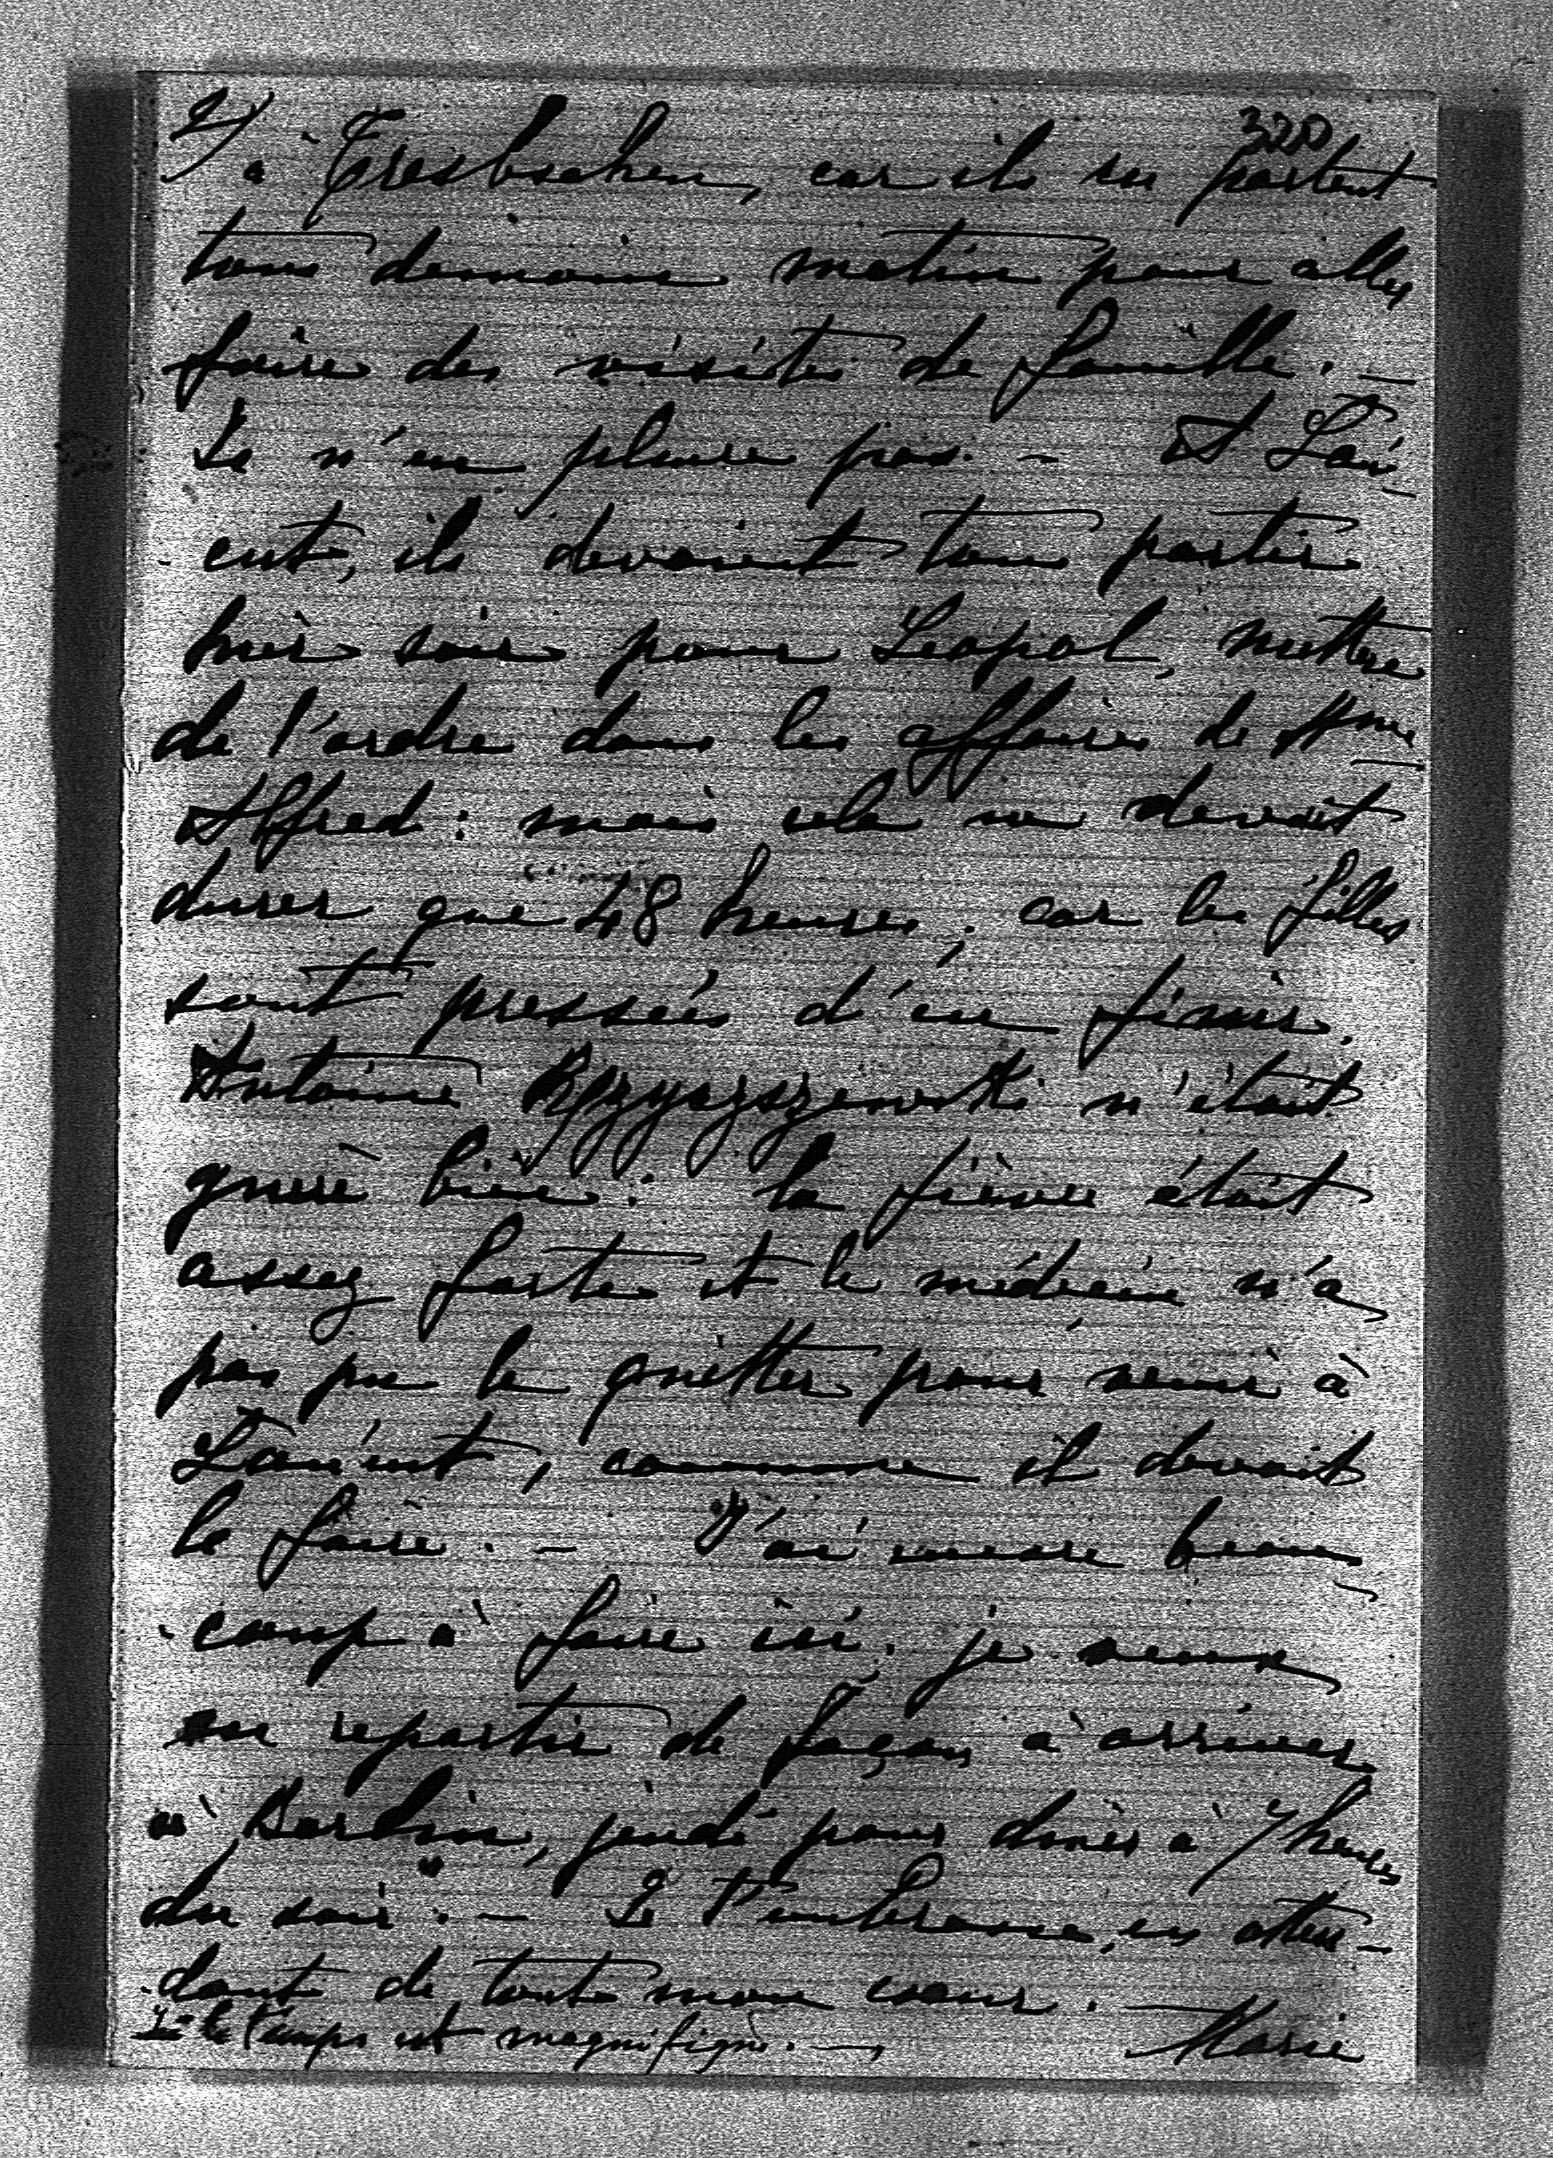 2/ 320
à Tresbschen, car ils en partent
tous demain matin pour aller
faire des visites de famille. —
Je n'en pleure pas. — A Lan-
cut, ils devaient tous partir
hier soir pour Leopol, mettre
de l'ordre dans les affaires de Mme
Alfred : mais cela ne devait
durer que 48 heures, car les filles
sont pressées d'en finir.
Antoine n'était
guère bien : la fièvre était
assez forte et le médecin n'a
pas pu le quitter pour venir à
Lancut, comme il devait
le faire. — J'ai encore beau-
coup à faire ici. je veux
en repartir de façon à arriver
à Berlin, jeudi pour dîner à 7 heures
du soir. — Je t'embrasse, en atten-
dant de tout mon cœur. —
le temps est magnifique. — Marie